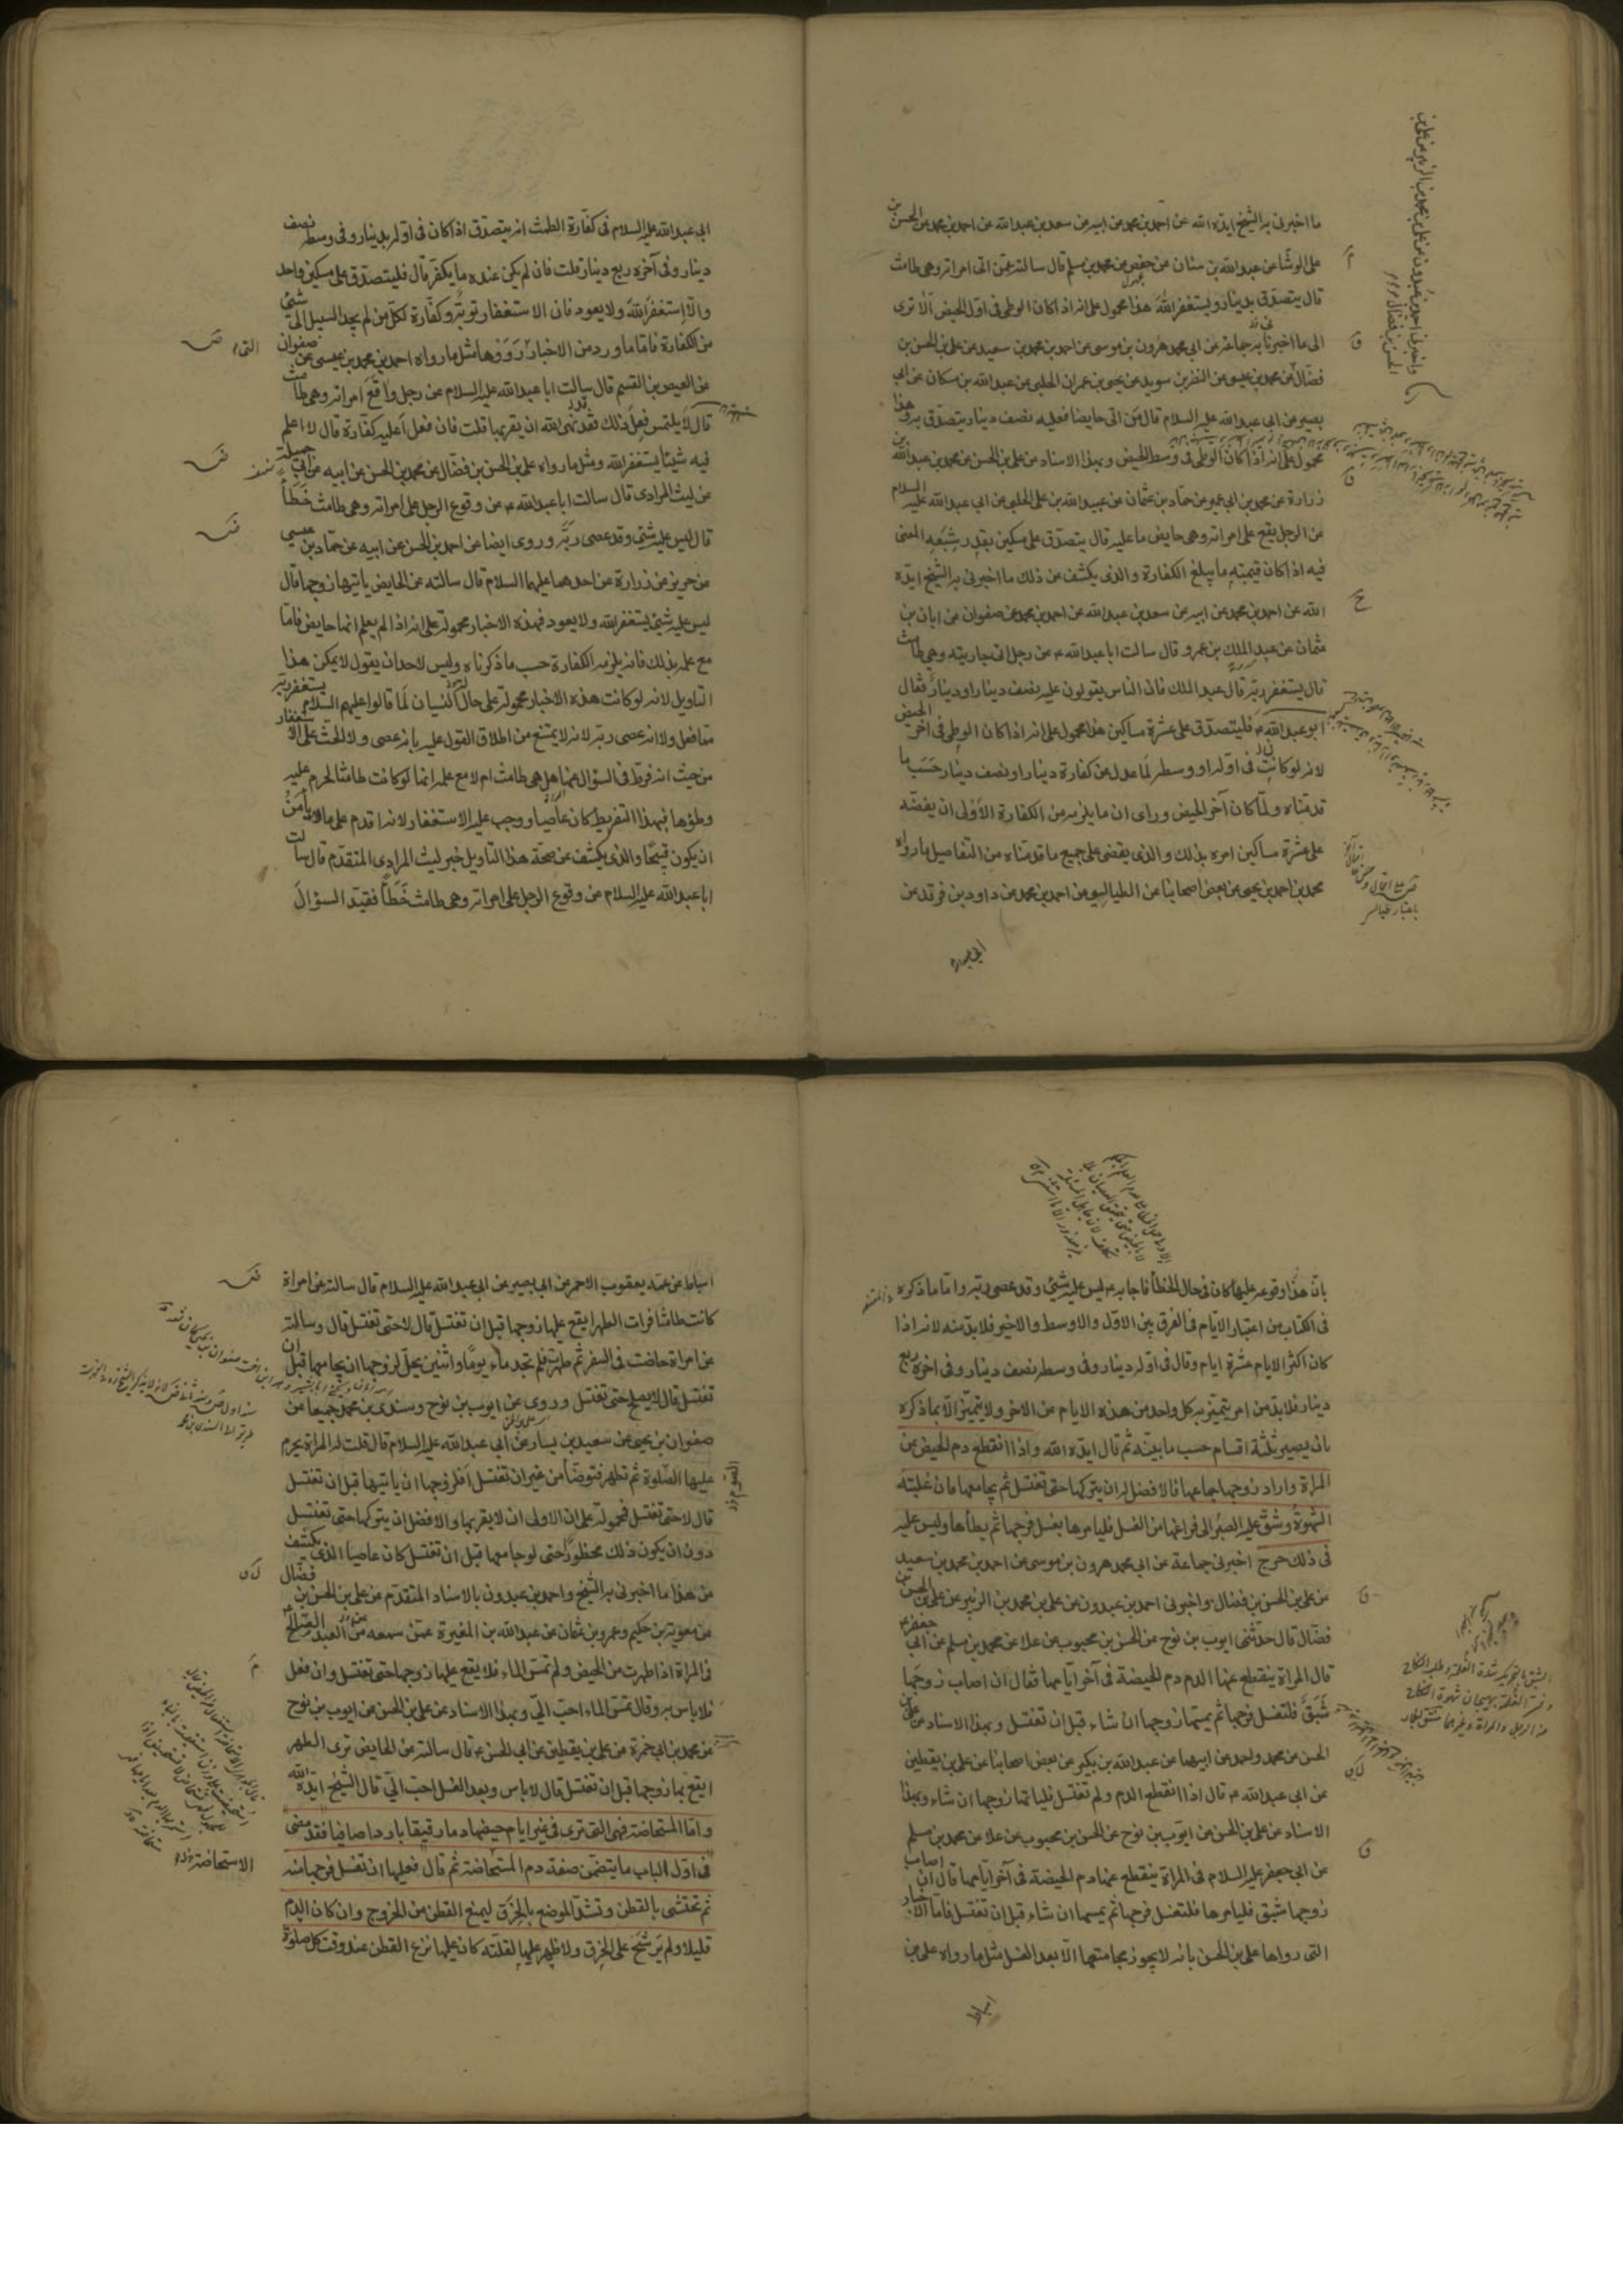 ما اخبرنی به الشیخ ایده الله عن احمد بن محمد عن ابیه عن سعد بن عبدالله عن احمد بن محمد عن الحسن بن
علی الوشا عن عبدالله بن سنان عن حفص عن محمد بن مسلم قال سالته عمن اتی امراته وهی طامث
قال یتصدق بدینار ویستغفر الله هذا محمول علی انه اذا کان الوطی فی اول الحیض الا تری
الی ما اخبرنا به جماعة عن ابی محمد هرون بن موسی عن احمد بن محمد بن سعید عن علی بن الحسن بن
فضال عن محمد بن عیسی عن النضر بن سوید عن یحیی بن عمران الحلبی عن عبدالله بن مسکان عن ابی
بصیر عن ابی عبدالله علیه السلام قال من اتی حایضا فعلیه نصف دینار یتصدق به وهذا
محمول علی انه اذا کان الوطی فی وسط الحیض وبهذا الاسناد عن علی بن الحسن عن محمد بن عبدالله بن
زرارة عن محمد بن ابی عمیر عن حماد بن عثمان عن عبیدالله بن علی الحلبی عن ابی عبدالله علیه السلام
عن الرجل یقع علی امراته وهی حایض ما علیه قال یتصدق علی مسکین بقدر شبعه المعنی
فیه اذا کان قیمته ما یبلغ الکفارة والذی یکشف عن ذلک ما اخبرنی به الشیخ ایده
الله عن احمد بن محمد عن ابیه عن سعد بن عبدالله عن احمد بن محمد عن صفوان عن ابان بن
عثمان عن عبد الملک بن عمرو قال سالت ابا عبدالله ع عن رجل اتی جاریته وهی طامث
قال یستغفر ربه قال عبد الملک فان الناس یقولون علیه نصف دینار او دینار فقال
ابو عبدالله ع فلیتصدق علی عشرة مساکین هذا محمول علی انه اذا کان الوطی فی آخر الحیض
لانه لو کانت فی اوله او وسطه لما عدل عن کفارة دینار او نصف دینار حسب ما
قدمناه ولما کان آخر الحیض ورای ان ما یلزمه من الکفارة الاولی ان یفضه
علی عشرة مساکین امره بذلک والذی یقضی علی جمیع ما قدمناه من التفاصیل ما رواه
محمد بن احمد بن یحیی عن بعض اصحابنا عن الطیالسی عن احمد بن محمد عن داود بن فرقد عن
ابی عبدالله علیه السلام فی کفارة الطمث انه یتصدق اذا کان فی اوله بدینار وفی وسطه نصف
دینار وفی آخره ربع دینار قلت فان لم یکن عنده ما یکفر قال فلیتصدق علی مسکین واحد
والا استغفر الله ولا یعود فان الاستغفار توبة وکفارة لکل من لم یجد السبیل الی شئ
من الکفارة فاما ما ورد من الاخبار مثل ما رواه احمد بن محمد بن عیسی عن صفوان
عن العیص بن القسم قال سالت ابا عبدالله علیه السلام عن رجل واقع امراته وهی طامث
قال لا یلتمس فعل ذلک فقد نهی الله ان یقربها قلت فان فعل اعلیه کفارة قال لا اعلم
فیه شیئا یستغفر الله ومثل ما رواه علی بن الحسن بن فضال عن محمد بن الحسن عن ابیه عن ابی جمیلة
عن لیث المرادی قال سالت ابا عبدالله ع عن وقوع الرجل علی امراته وهی طامث خطأ
قال لیس علیه شئ وقد عصی ربه وروی ایضا عن احمد بن الحسن عن ابیه عن حماد بن عیسی
عن حریز عن زرارة عن احدهما علیهما السلام قال سالته عن الحایض یاتیها زوجها قال
لیس علیه شئ یستغفر الله ولا یعود فهذه الاخبار محمولة علی انه اذا لم یعلم انها حایض فاما
مع علمه بذلک فانه یلزمه الکفارة حسب ما ذکرناه ولیس لاحد ان یقول لا یمکن هذا
التاویل لانه لو کانت هذه الاخبار محمولة علی حال النسیان لما قالوا علیهم السلام یستغفر ربه
مما فعل ولا انه عصی ربه لانه لا یمتنع من اطلاق القول علیه بانه عصی ولا الحث علی الاستغفار
من حیث انه فرط فی السؤال عنها هل هی طامث ام لا مع علمه انها لو کانت طامثا لحرم علیه
وطؤها فبهذا التفریط کان عاصیا ووجب علیه الاستغفار لانه اقدم علی ما لا یأمن
ان یکون قبیحا والذی یکشف عن صحة هذا التاویل خبر لیث المرادی المتقدم قال سالت
ابا عبدالله علیه السلام عن وقوع الرجل علی امراته وهی طامث خطأ فقید السؤال
بان هذا وقوعه علیها کان فی حال الخطأ فاجابه ع لیس علیه شئ وقد عصی ربه واما ما ذکره
فی الکتاب من اعتبار الایام فی الفرق بین الاول والاوسط والاخیر فلابد منه لانه اذا
کان اکثر الایام عشرة ایام وقال فی اوله دینار وفی وسطه نصف دینار وفی اخره ربع
دینار فلابد من امر یتمیز به کل واحد من هذه الایام من الاخر ولا یتمیز الا بما ذکره
بان یصیر ثلثة اقسام حسب ما بینه ثم قال ایده الله واذا انقطع دم الحیض عن
المراة واراد زوجها جماعها فالافضل له ان یترکها حتی تغتسل ثم یجامعها فان غلبته
الشهوة وشق علیه الصبر الی فراغها من الغسل فلیامرها بغسل فرجها ثم یطأها ولیس علیه
فی ذلک حرج اخبرنی جماعة عن ابی محمد هرون بن موسی عن احمد بن محمد بن سعید
عن علی بن الحسن بن فضال واخبرنی احمد بن عبدون عن علی بن محمد بن الزبیر عن علی بن الحسن بن
فضال قال حدثنی ایوب بن نوح عن الحسن بن محبوب عن علا عن محمد بن مسلم عن ابی جعفر ع
قال المراة ینقطع عنها الدم دم الحیضة فی آخر ایامها فقال ان اصاب زوجها
شبق فلتغسل فرجها ثم یمسها زوجها ان شاء قبل ان تغتسل وبهذا الاسناد عن علی بن
الحسن عن محمد واحمد عن ابیهما عن عبدالله بن بکیر عن بعض اصحابنا عن علی بن یقطین
عن ابی عبدالله ع قال اذا انقطع الدم ولم تغتسل فلیاتها زوجها ان شاء وبهذا
الاسناد عن علی بن الحسن عن ایوب بن نوح عن الحسن بن محبوب عن علا عن محمد بن مسلم
عن ابی جعفر علیه السلام فی المراة ینقطع عنها دم الحیضة فی آخر ایامها قال ان اصاب
زوجها شبق فلیامرها فلتغسل فرجها ثم یمسها ان شاء قبل ان تغتسل فاما الاخبار
التی رواها علی بن الحسن بانه لا یجوز مجامعتها الا بعد الغسل مثل ما رواه علی بن
اسباط عن عمه یعقوب الاحمر عن ابی بصیر عن ابی عبدالله علیه السلام قال سالته عن امراة
کانت طامثا فرات الطهر ایقع علیها زوجها قبل ان تغتسل قال لا حتی تغتسل قال وسالته
عن امراة حاضت فی السفر ثم طهرت فلم تجد ماء یوما واثنین یحل لزوجها ان یجامعها قبل ان
تغتسل قال لا یصلح حتی تغتسل وروی عن ایوب بن نوح وسندی بن محمد جمیعا عن
صفوان بن یحیی عن سعید بن یسار عن ابی عبدالله علیه السلام قال قلت له المراة یحرم
علیها الصلوة ثم تطهر فتوضأ من غیر ان تغتسل افلزوجها ان یاتیها قبل ان تغتسل
قال لا حتی تغتسل فمحمولة علی ان الاولی ان لا یقربها والافضل ان یترکها حتی تغتسل
دون ان یکون ذلک محظورا حتی لو جامعها قبل ان تغتسل کان عاصیا الذی یکشف
عن هذا ما اخبرنی به الشیخ واحمد بن عبدون بالاسناد المتقدم عن علی بن الحسن بن فضال
عن معویة بن حکیم وعمرو بن عثمان عن عبدالله بن المغیرة عمن سمعه عن العبد الصالح
فی المراة اذا طهرت من الحیض ولم تمس الماء فلا یقع علیها زوجها حتی تغتسل وان فعل
فلا باس به وقال تمس الماء احب الی وبهذا الاسناد عن علی بن الحسن عن ایوب بن نوح
عن محمد بن ابی حمزة عن علی بن یقطین عن ابی الحسن ع قال سالته عن الحایض تری الطهر
ایقع بها زوجها قبل ان تغتسل قال لا باس وبعد الغسل احب الی قال الشیخ ایده الله
واما المستحاضة فهی التی تری فی غیر ایام حیضها دما رقیقا باردا صافیا فقد مضی
فی اول الباب ما یتضمن صفة دم المستحاضة ثم قال فعلیها ان تغسل فرجها منه
ثم تحتشی بالقطن وتشد الموضع بالخرق لیمنع القطن من الخروج وان کان الدم
قلیلا ولم یرشح علی الخرق ولا ظهر علیها لقلته کان علیها نزع القطن عند وقت کل صلوة